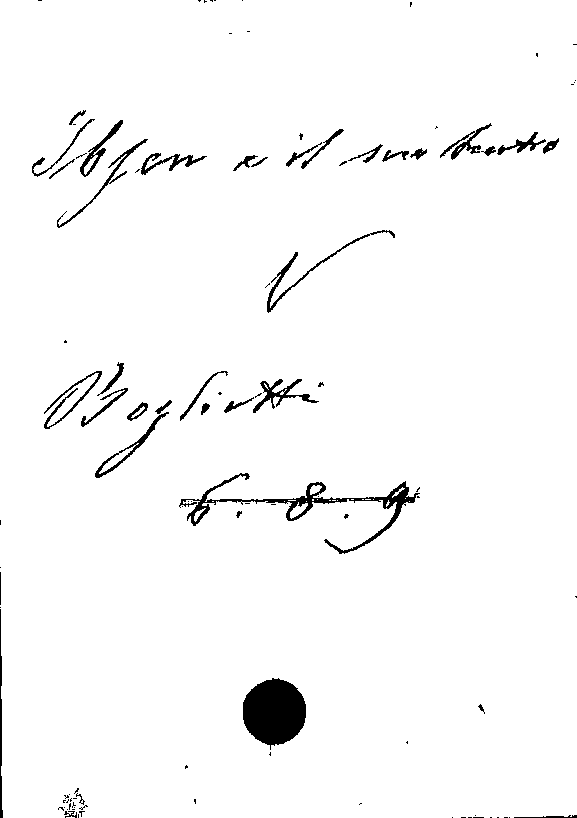 Ibsen e il suo teatro
V
Boglietti
6. 8. 9